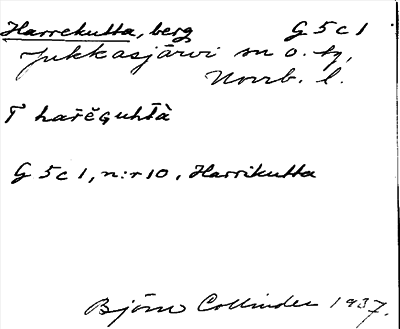 Harrekutta, berg G 5 c 1
Jukkasjärvi sn o. tg,
Norrb. l.
T hařĕguhtà
G 5 c 1, n:r 10, Harrikutta
Björn Collinder 1937.